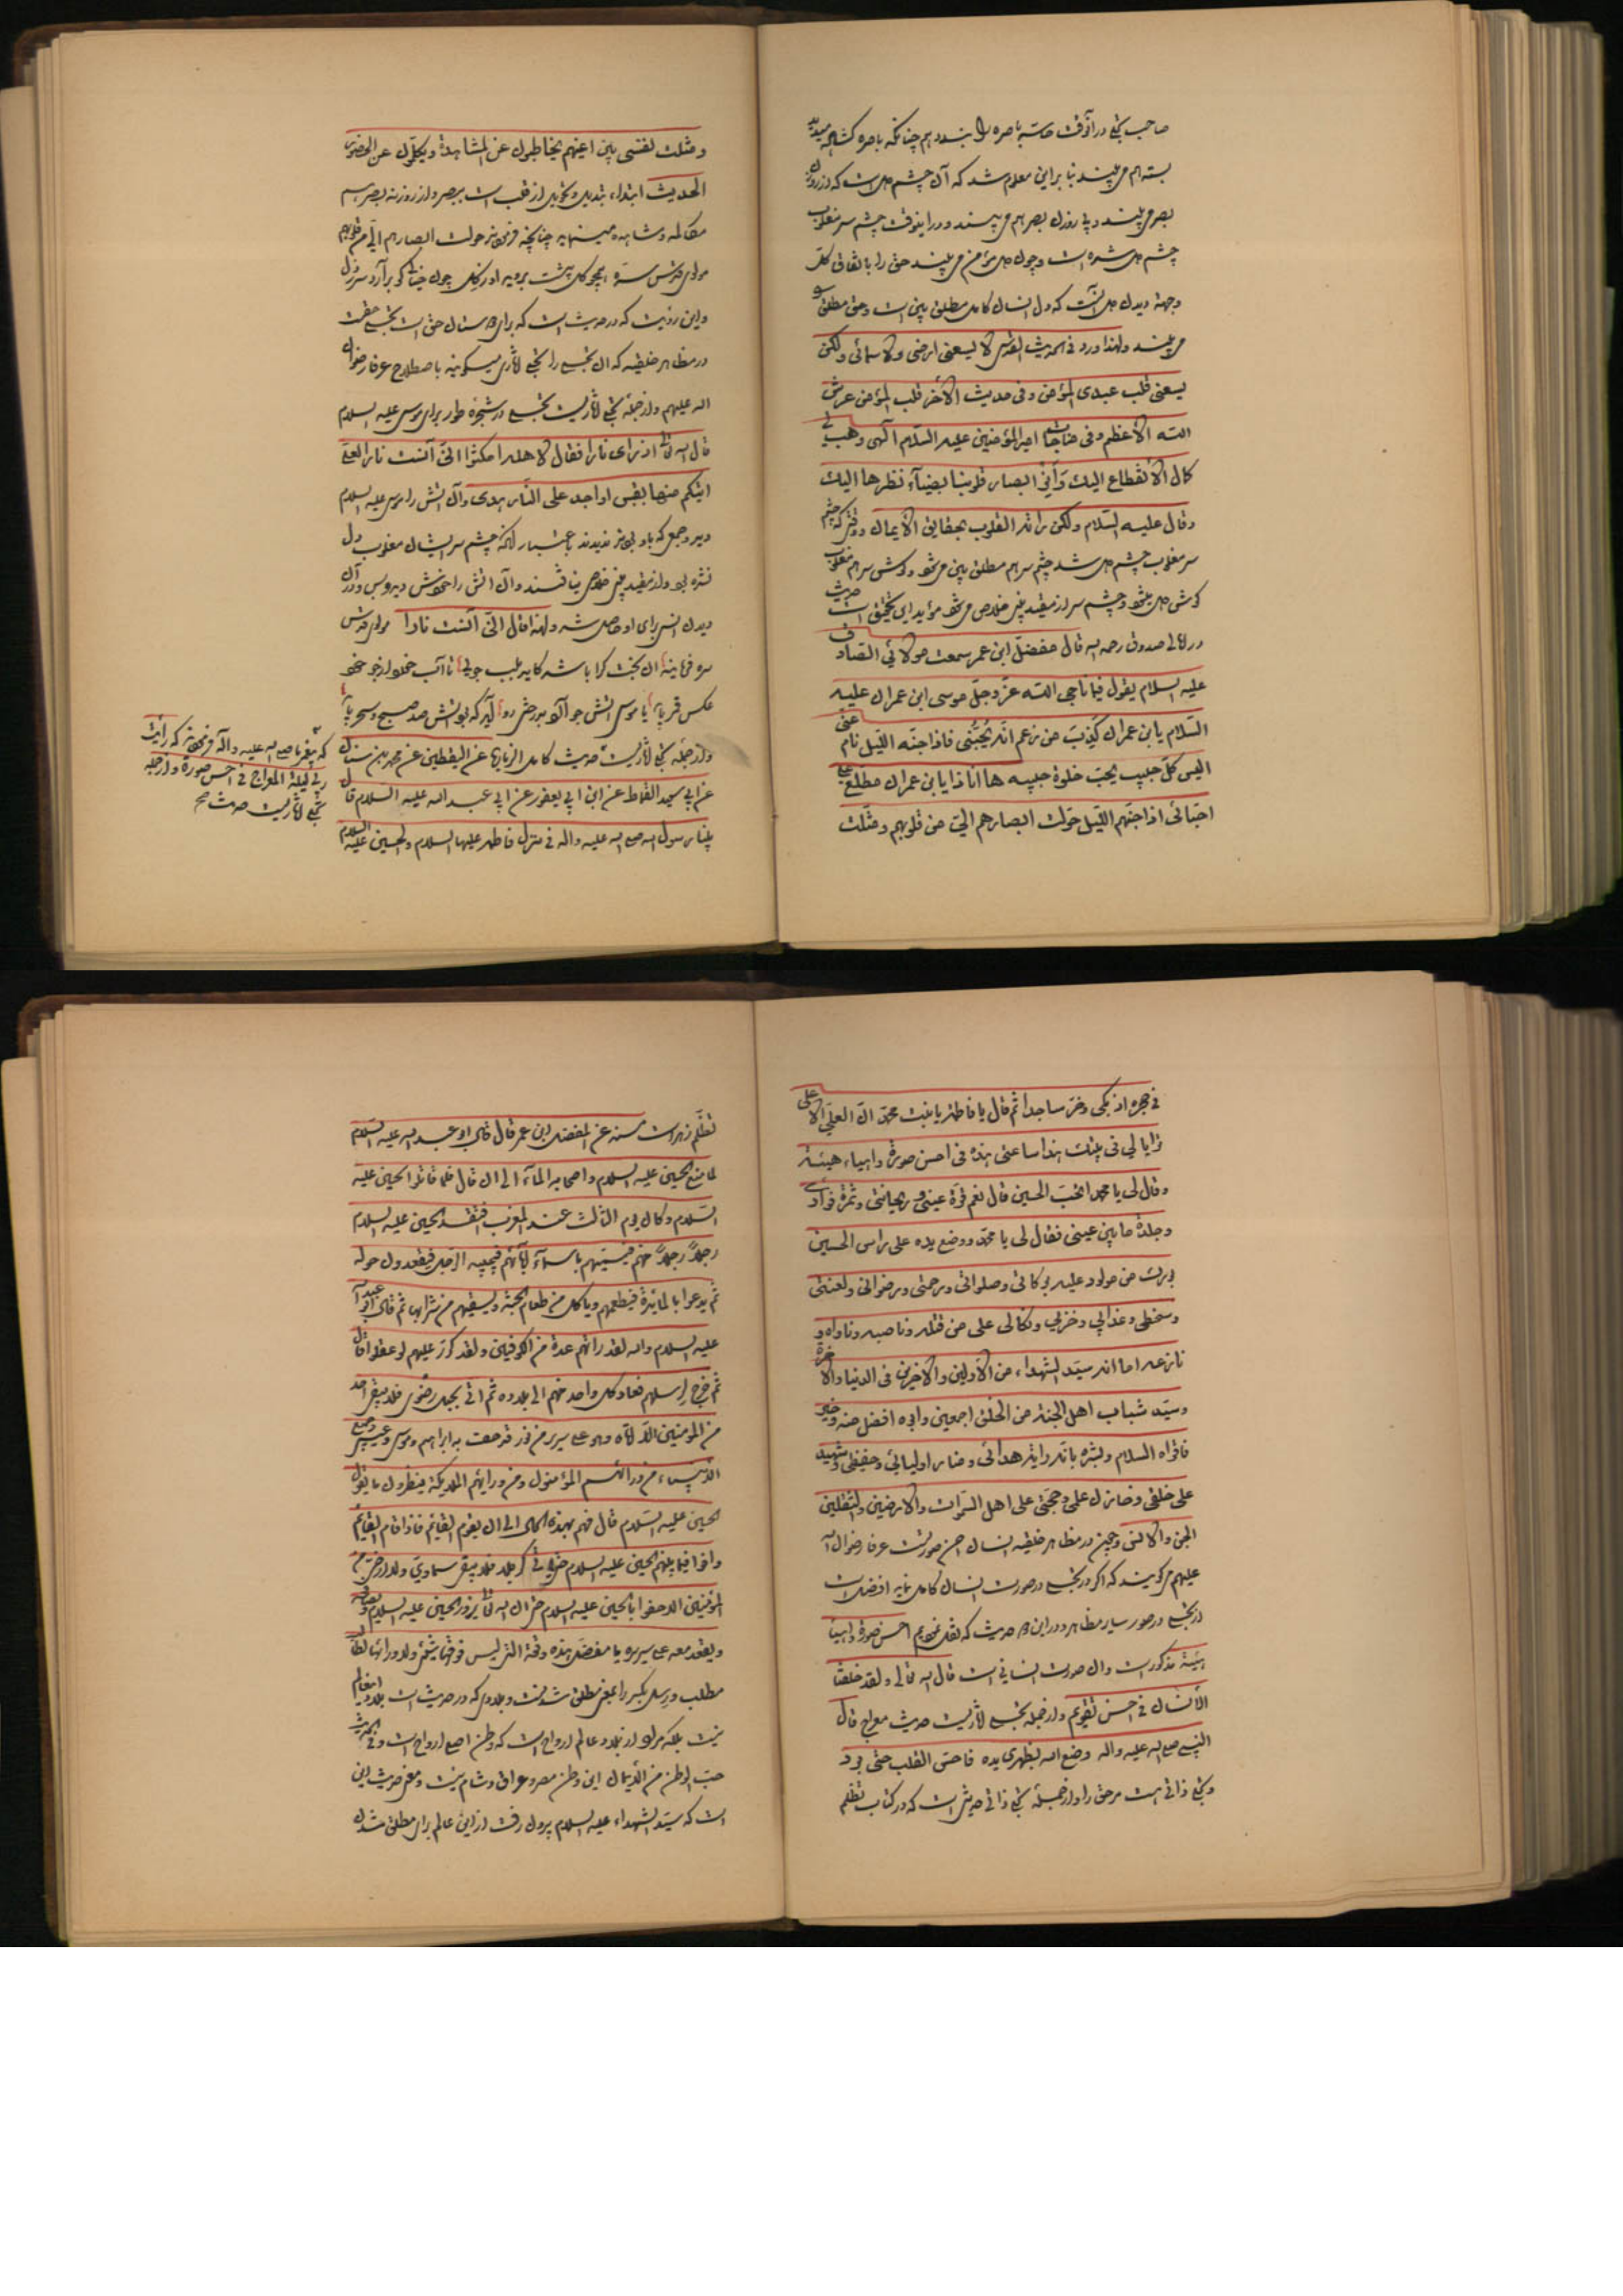 صاحب تجلی در آنوقت حاسّه باصره را ببندد هم چنانکه باصره کشاده میدید
بسته هم می بیند بنا بر این معلوم شد که آن چشم دل است که از روزن
بصر می بیند و بی روزن بصر هم می بیند و در اینوقت چشم سر مغلوب
چشم دل شده است و چون دل مؤمن می بیند حق را باتفاق کل
وجهة دیدن دل آنست که دل انسان کامل مطلق بین است و حق مطلق را
می بیند ولهذا ورد فی الحدیث القدسی لا یسعنی ارضی ولا سمائی ولکن
یسعنی قلب عبدی المؤمن وفی حدیث الآخر قلب المؤمن عرش
اللّه الاعظم وفی مناجات امیر المؤمنین علیه السّلام الهی وهب لی
کمال الانقطاع الیک وأنر ابصار قلوبنا بضیآء نظرها الیک
وقال علیه السّلام ولکن راته القلوب بحقایق الایمان ووقتی که چشم
سر مغلوب چشم دل شد چشم سر هم مطلق بین می شود وکوش سر هم مغلوب
کوش دل میشود وچشم سر از مقید بینی خلاص می شود مؤید این تحقیق است حدیث
در امالی صدوق رحمه الله قال مفضّل ابن عمر سمعت مولائی الصّادق
علیه السلام یقول فیما ناجی اللّه عزّ وجلّ موسی ابن عمران علیه
السّلام یابن عمران کَذِبَ من زعم انّه یُحبّنی فاذا جنّه اللّیل نام عنّی
الیس کلّ حبیب یحبّ خلوة حبیبه ها انا ذا یابن عمران مطّلع علی
احبّائی اذا جنّهم اللّیل حوّلت ابصارهم الیّ من قلوبهم ومثّلت
ومثلت نفسی بین اعینهم یخاطبون عن المشاهدة ویکلّمون عن الحضور
الحدیث ابتداء تبدیل وتحویل از قلب است ببصر واز روزنه بصر هم
مکالمه ومشاهده مینماید چنانچه فرموده حولت ابصارهم الیّ من قلوبهم
مولوی قدّس سرّه
واین رؤیت که در حدیث است که برای دوستان حق است تجلی حقست
در مظاهر خلقیه که این تجلی را تجلی آثاری میکویند باصطلاح عرفا رضوان
الله علیهم واز جملهٔ تجلی آثاریست تجلی در شجرهٔ طور برای موسی علیه السلام
قال الله تعالی اذ رای نارا فقال لاهله امکثوا انّی آنست نارا لعلّی
اتیکم منها بقبس او اجد علی النّار هدی وآن آتش را موسی علیه السلام
دید وجمعی که با وی بودند ندیدند باعتبار آنکه چشم سر ایشان مغلوب دل
نشده بود واز مقید بینی خلاصی نیافتند وآن آتش را حضرت موسی دید وبس وازآن
دیدن انس برای او حاصل شد ولهذا قال انّی آنست نارا مولوی قدس
سره فرماید
عکس قمر باش یا موسی آتش جو
واز جملهٔ تجلی آثاریست حدیث کامل الزیارة عن الیقطینی عن محمد بن سنان
عن ابی سعید القماط عن ابن ابی یعفور عن ابی عبد الله علیه السلام قال
بینا رسول الله صلی الله علیه واله فی منزل فاطمه علیها السلام والحسین علیه السلام
که پیغمبر ما صلی الله علیه واله فرموده که رایت
ربی لیلة المعراج فی احسن صورة واز جمله
تجلی آثاریست حدیث صح
فی حجره اذ بکی وخرّ ساجدا ثم قال یا فاطمه یا بنت محمّد انّ العلیّ الاعلی
ترایا لی فی بیتک هذا ساعتی هذه فی احسن صورة واهیاء هیئة
وقال لی یا محمد اتحبّ الحسین قال نعم قرّة عینی وریحانتی وثمرة فوأدی
وجلدة ما بین عینی فقال لی یا محمّد ووضع یده علی راس الحسین
بورک من مولود علیه برکاتی وصلواتی ورحمتی ورضوانی ولعنتی
وسخطی وعذابی وخزیی ونکالی علی من قتله وناصبه وناواه و
نازعه اما انه سیّد الشهداء من الاولین والاخرین فی الدنیا والاخرة
وسیّد شباب اهل الجنة من الخلق اجمعین وابوه افضل منه وخیر
فاقراه السلام وبشّره بانّه رایة هدائی ومنار اولیائی وحفیظی وشهیدی
علی خلقی وخازن علمی وحجّتی علی اهل السّموات والارضین والثقلین
الجنّ والانس وچون در مظاهر خلقیه انسان احسن صورتست عرفا رضوان الله
علیهم می کویند که اکر در تجلی در صورت انسان کامل نماید افضل است
از تجلی در صور سایر مظاهر ودر این دو حدیث که نقل نمودیم احسن صورة واهیأ
هیئة مذکور است وآن صورت انسانی است قال الله تعالی ولقد خلقنا
الانسان فی احسن تقویم واز جمله تجلی آثاریست حدیث معراج قال
النبی صلی الله علیه واله وضع الله بظهری یده فاحسّ القلب حتی برد
وتجلی ذاتی است مر حق را واز جملهٔ تجلی ذاتی حدیثی است که در کتاب تظلم
تظلّم زهراست مسند عن المفضل ابن عمر قال قال ابو عبد الله علیه السّلام
لما منع الحسین علیه السلام واصحابه المآء الی ان قال فلما قاتلوا الحسین علیه
السّلام وکان یوم الثالث عند المغرب افتقد الحسین علیه السلام
رجلاً رجلاً منهم فیسمّیهم باسمآء آبائهم فیجیبه الرّجل فیقعدون حوله
ثم یدعوا بالمائدة فیطعمهم ویاکل من طعام الجنة ویسقیهم من شرابها ثم قال ابو عبد الله
علیه السلام والله لقد راتهم عدة من الکوفیین ولقد کوّر علیهم لو عقلوا قال
ثم خرج لرسلهم فعاد کل واحد منهم الی بلاده ثم اتی بجبل رضوی فلا یبقی احد
من المؤمنین الّا اتاه وهو علی سریر من نور قد حفت به ابراهیم وموسی وعیسی وجمیع
الانبیاء من ورائهم المؤمنون ومن ورائهم الملائکة ینظرون ما یقول
الحسین علیه السّلام قال فهم بهذه الحال الی ان یقوم القائم فاذا قام القایم
وافوا فیما بینهم الحسین علیه السلام حتی یاتی کربلا فلا یبقی سماوی ولا ارضی من
المؤمنین الا حفوا بالحسین علیه السلام حتی ان الله تعالی یزور الحسین علیه السلام ویصافحه
ویقعد معه علی سریره یا مفضّل هذه والله الرفعة التی لیس فوقها شیٔ ولا ورائها لطالب
مطلب
نیست بلکه مراد از بلاد عالم ارواح است که وطن اصلی ارواح است وفی الحدیث
حبّ الوطن من الایمان این وطن مصر وعراق وشام نیست ومعنی حدیث این
است که سیّد الشهداء علیه السلام بیرون رفت از این عالم برای مطلق شدن